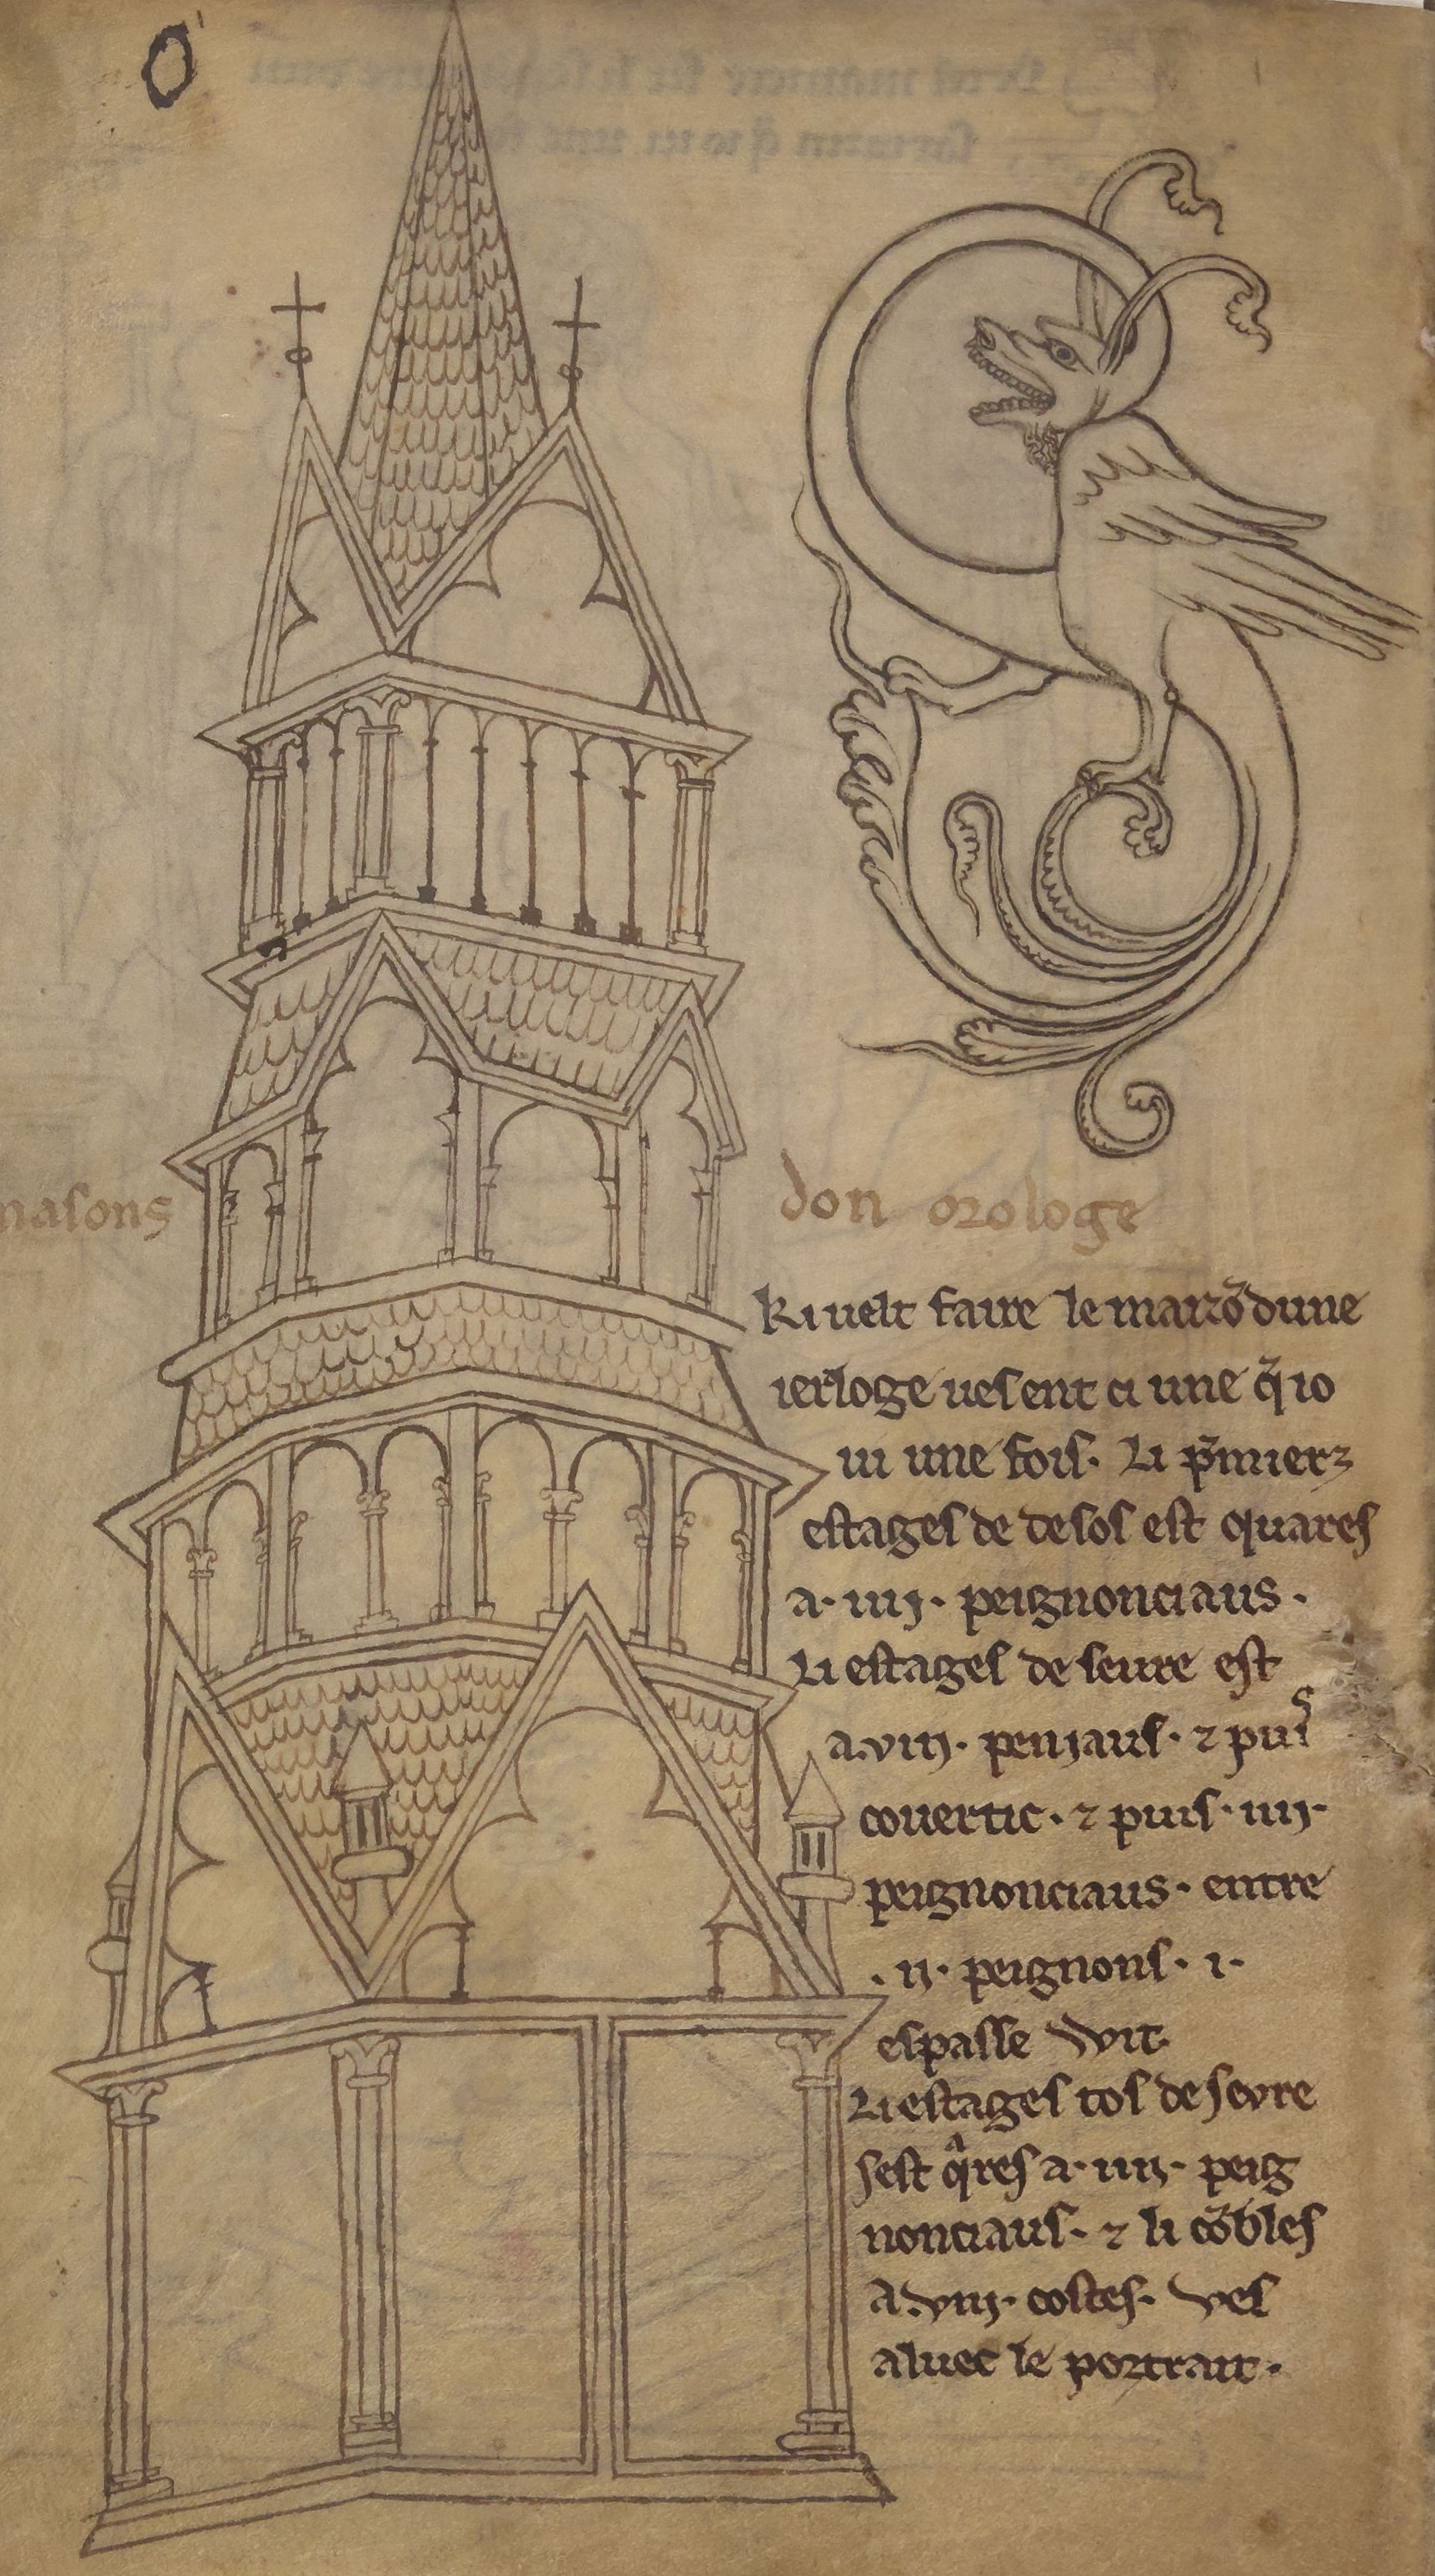 o
masons
don orologe
Ki uelt faire le maizõ dune
ierloge ues ent ci une q̃ io
ui une fois. Li p̃miers
estages de desos est quares
a. iiij. peignonciaus.
Li estages deseure est
a. viij. peniaus. ⁊ puis
covertic. ⁊ puis. iiij.
peignonciaus. entre
. ij. peignons. i.
espasse wit
Li estages tos desevre
sest q̃res a. iiij. peig
nonciaus. ⁊ li cõbles
a. viij. costes. ves
aluec le portrait.